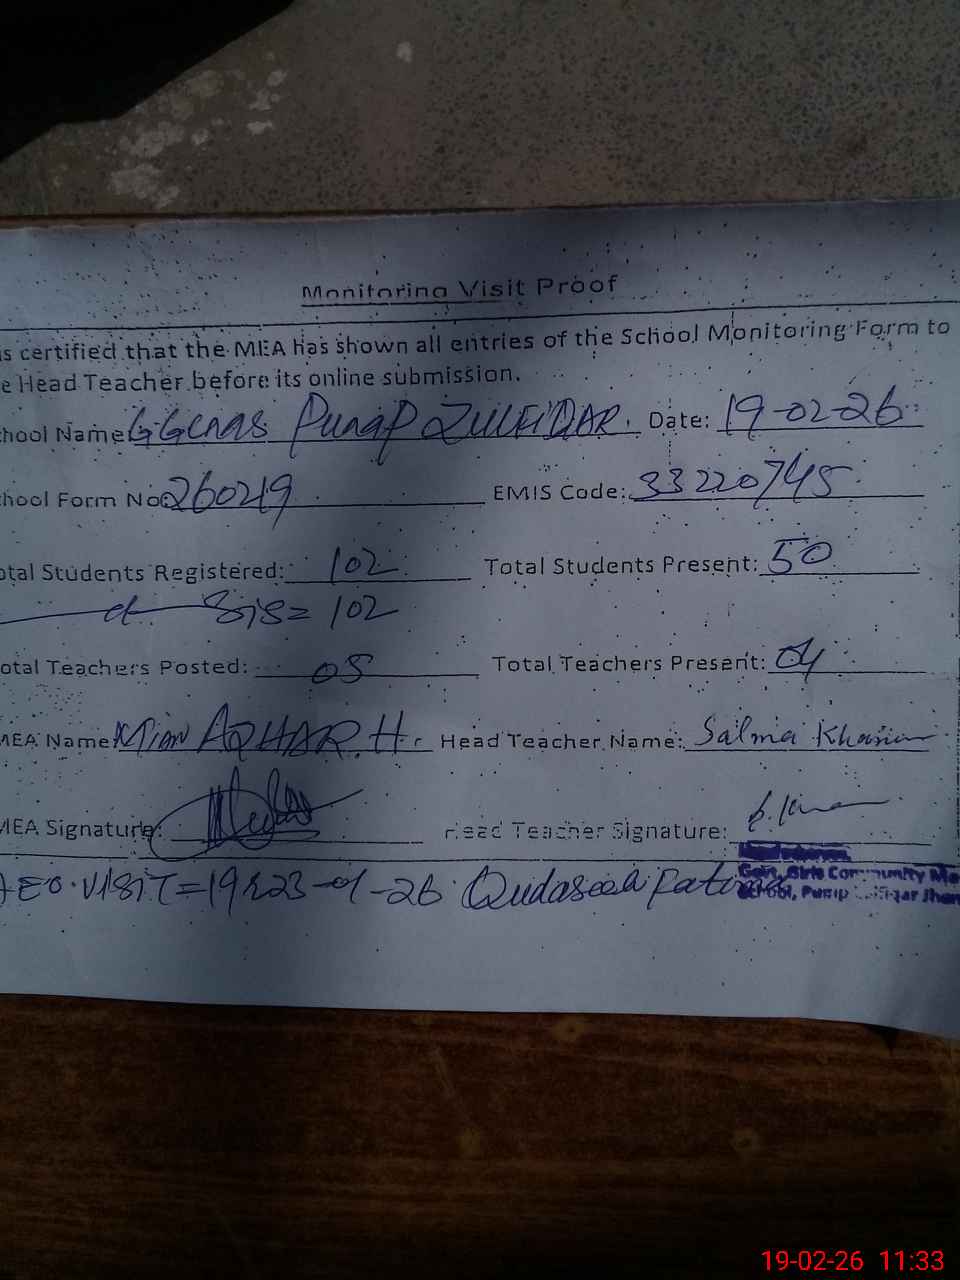 Monitoring Visit Proof
is certified that the MEA has shown all entries of the School Monitoring Form to
e Head Teacher before its online submission.
hool Name: PUMP ZULFIQAR. Date: 19-02-26
hool Form No: 260219 EMIS Code: 33220745
otal Students Registered: 102 Total Students Present: 50
SIS = 102
otal Teachers Posted: 05 Total Teachers Present: 04
MEA Name: Mian AZHAR. H. Head Teacher Name: Salma Khanum
MEA Signature: Head Teacher Signature:
AEO. VISIT = 19 & 23-01-26 Qudaseah Fatima
Govt. Girls Community Mo
School, Pump Zulfiqar Jhan
19-02-26 11:33